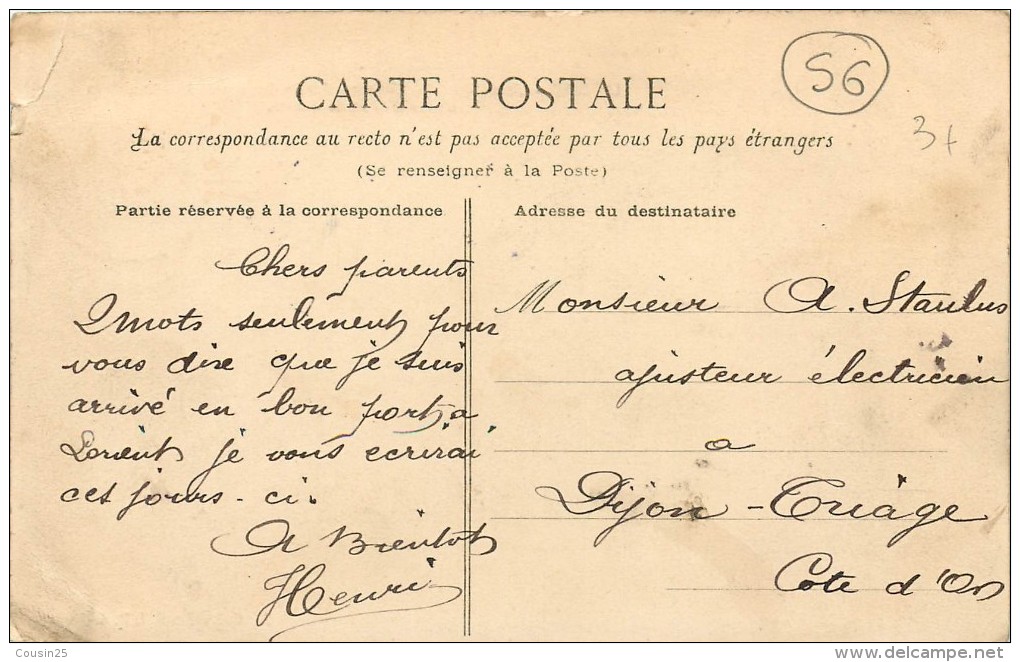 56
3+
CARTE POSTALE
La correspondance au recto n'est pas acceptée par tous les pays étrangers
(Se renseigner à la Poste)
Partie réservée à la correspondance
Chers parents
2 mots seulement pour
vous dire que je suis
arrivé en bon port a
Lorient je vous ecrirai
ces jours-ci.
A Bientot
Henri
Adresse du destinataire
Monsieur A. Staulus
ajusteur électricien
a
Dijon-Triage
Cote d'Or
Cousin25
www.delcampe.net